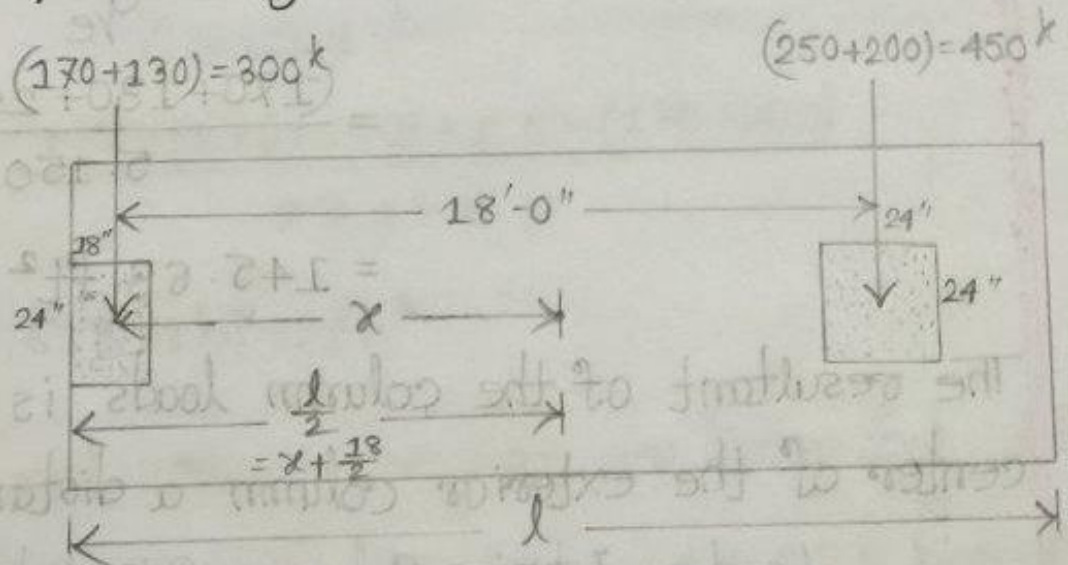 (170+130)=300k
(250+200)=450k
18'-0"
18"
24"
24"
24"
x
l/2
=x+18/2
l